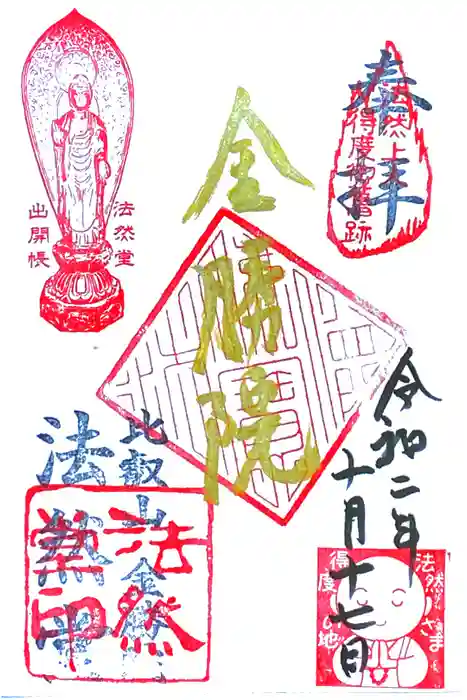 奉拝
法然上人
得度御舊跡
金勝院
令和二年
十月十七日
法然堂
出開帳
比叡山
法然堂
法然
堂印
法然さま
得度の地